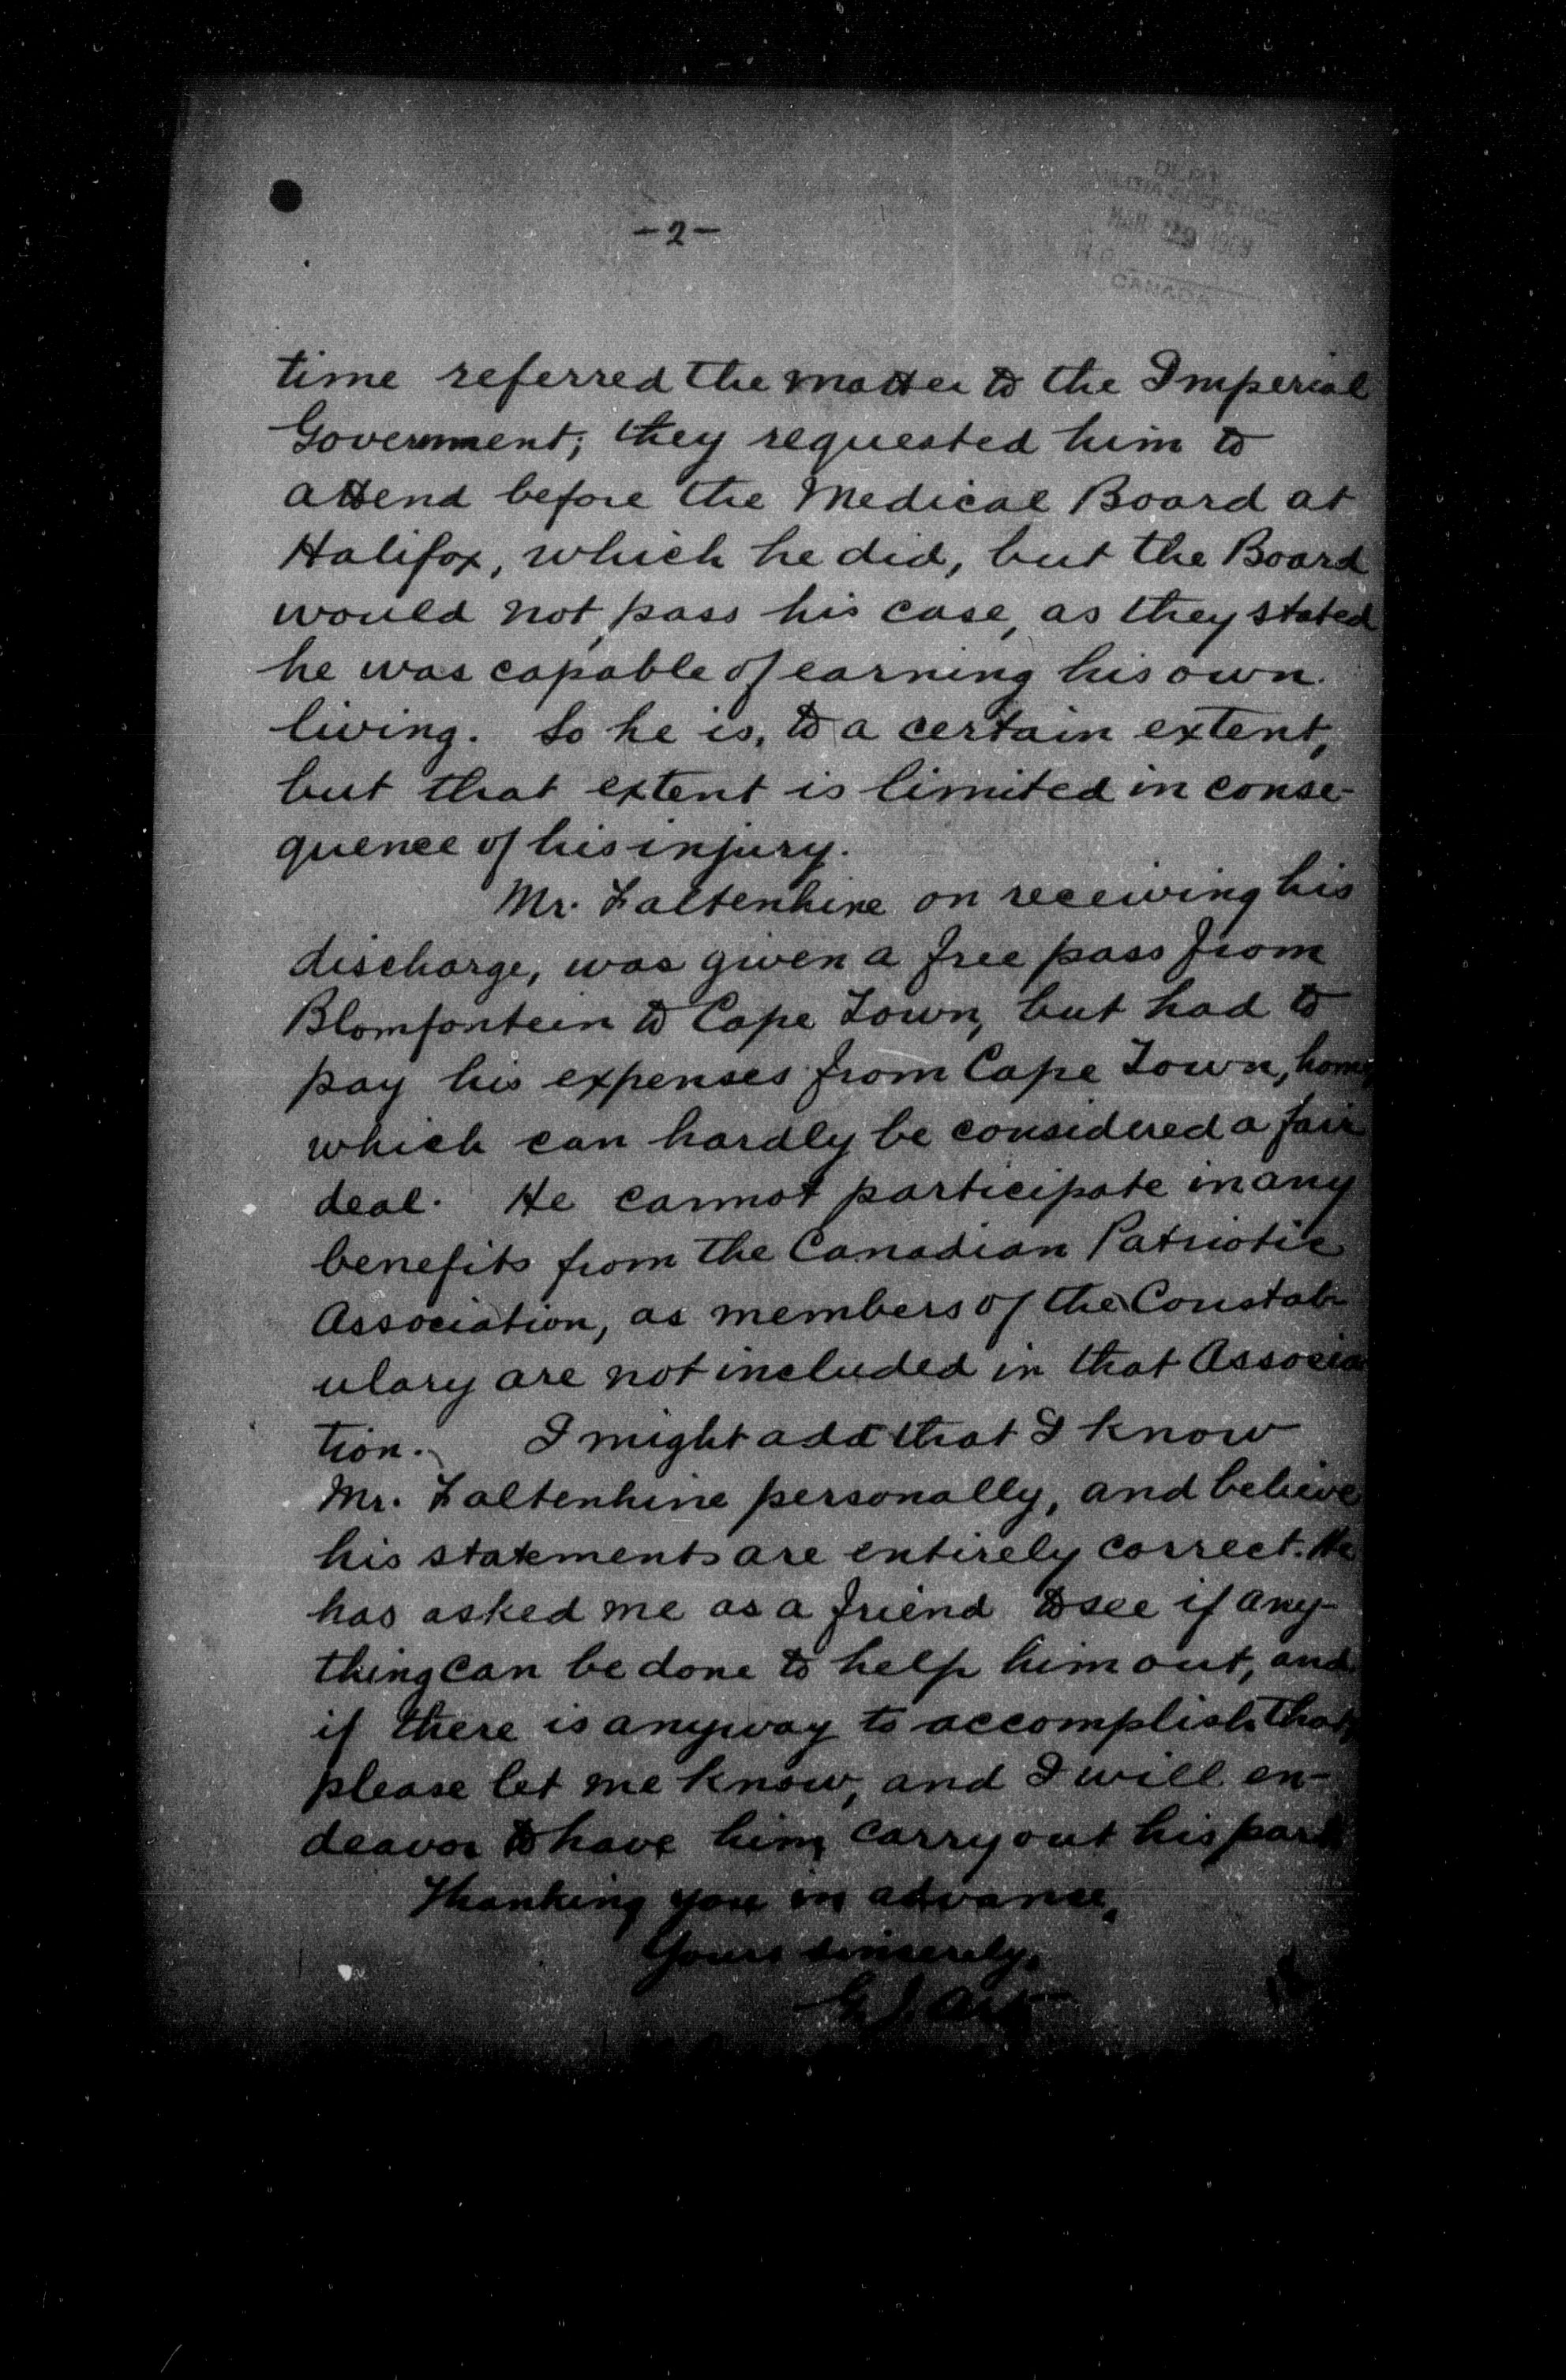 -2-
DEPT.
MILITIA & DEFENCE
MAR 29
H.Q.
CANADA
time referred the matter to the Imperial
Government; they requested him to
attend before the Medical Board at
Halifax, which he did, but the Board
would not pass his case, as they stated
he was capable of earning his own
living. So he is, to a certain extent,
but that extent is limited in conse-
quence of his injury.
Mr. Faltenhine on receiving his
discharge, was given a free pass from
Blomfontein to Cape Town, but had to
pay his expenses from Cape Town, home,
which can hardly be considered a fair
deal. He cannot participate in any
benefits from the Canadian Patriotic
Association, as members of the Constab-
ulary are not included in that Associa
tion. I might add that I know
Mr. Faltenhine personally, and believe
his statements are entirely correct. He
has asked me as a friend to see if any-
thing can be done to help him out, and
if there is anyway to accomplish that,
please let me know, and I will en-
deavor to have him carry out his part.
Thanking you in advance,
Yours sincerely,